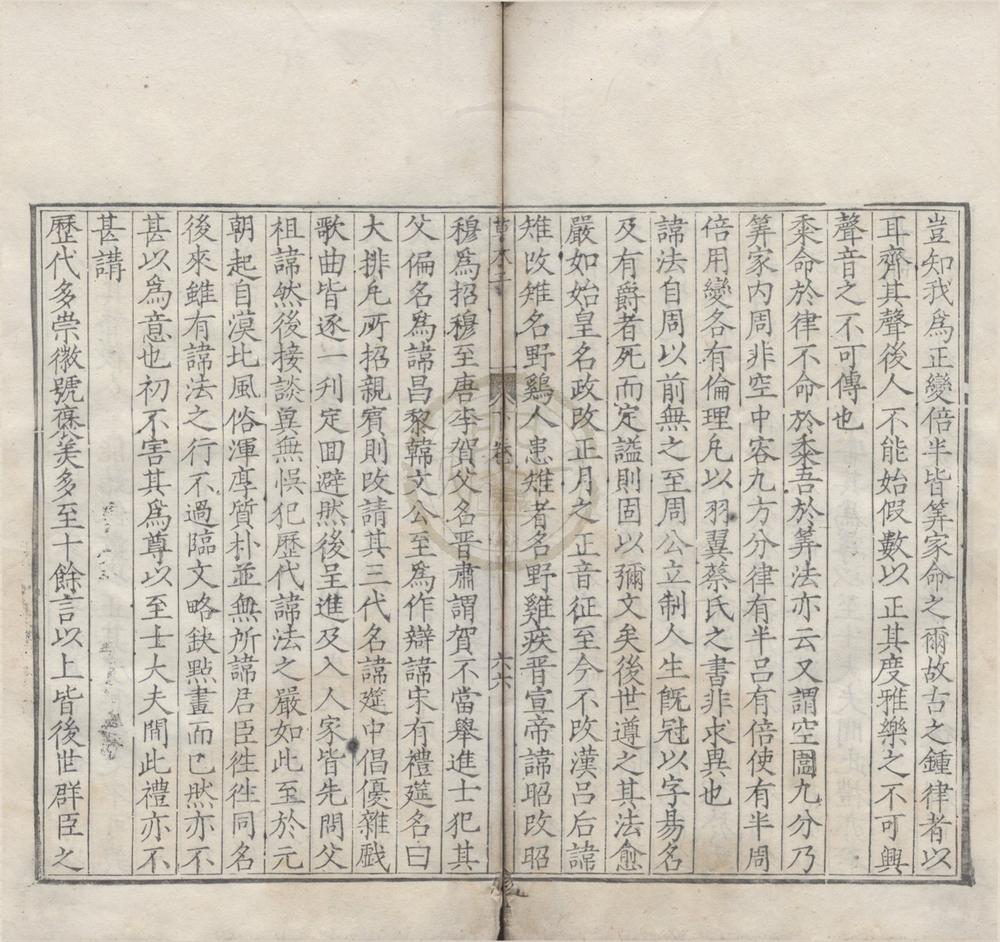 豈知我爲正變倍半皆筭家命之爾故古之鍾律者以
耳齊其聲後人不能始假數以正其度雅樂之不可興
聲音之不可傳也
黍命於律不命於黍吾於筭法亦云又謂空圍九分乃
筭家内周非空中容九方分律有半吕有倍使有半周
倍用變各有倫理凡以羽翼蔡氏之書非求異也
諱法自周以前無之至周公立制人生旣冠以字易名
及有爵者死而定謚則固以彌文矣後世遵之其法愈
嚴如始皇名政改正月之正音征至今不改漢吕后諱
雉改雉名野鷄人患雉者名野雞疾晋宣帝諱昭改昭
草木子 下卷 六六
穆爲招穆至唐李賀父名晋肅謂賀不當舉進士犯其
父偏名爲諱昌黎韓文公至爲作辯諱宋有禮筵名曰
大排凡所招親賓則改請其三代名諱筵中倡優雜戲
歌曲皆逐一刋定囬避然後呈進及入人家皆先問父
祖諱然後接談真無悞犯歷代諱法之嚴如此至於元
朝起自漠北風俗渾厚質朴並無所諱君臣徃徃同名
後來雖有諱法之行不過臨文略缺點畫而已然亦不
甚以爲意也初不害其爲尊以至士大夫間此禮亦不
甚講
歷代多崇徽號襃美多至十餘言以上皆後世群臣之